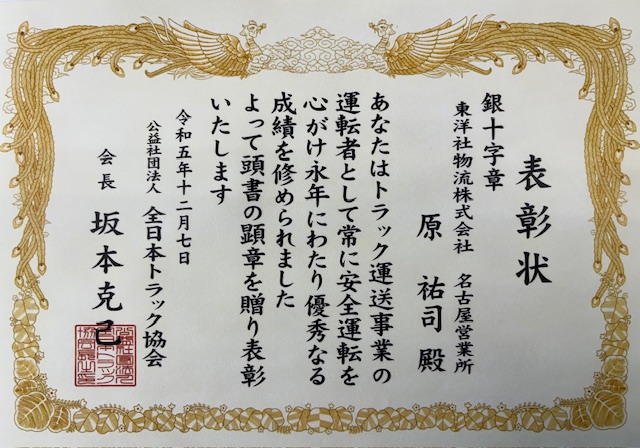 表彰状
銀十字章
東洋社物流株式会社 名古屋営業所
原 祐司 殿
あなたはトラック運送事業の
運転者として常に安全運転を
心がけ永年にわたり優秀なる
成績を修められました
よって頭書の顕章を贈り表彰
いたします
令和五年十二月七日
公益社団法人 全日本トラック協会
会長 坂本克己